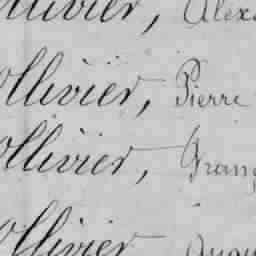 Ollivier, Alex
Ollivier, Pierre
Ollivier, Franç
Ollivier